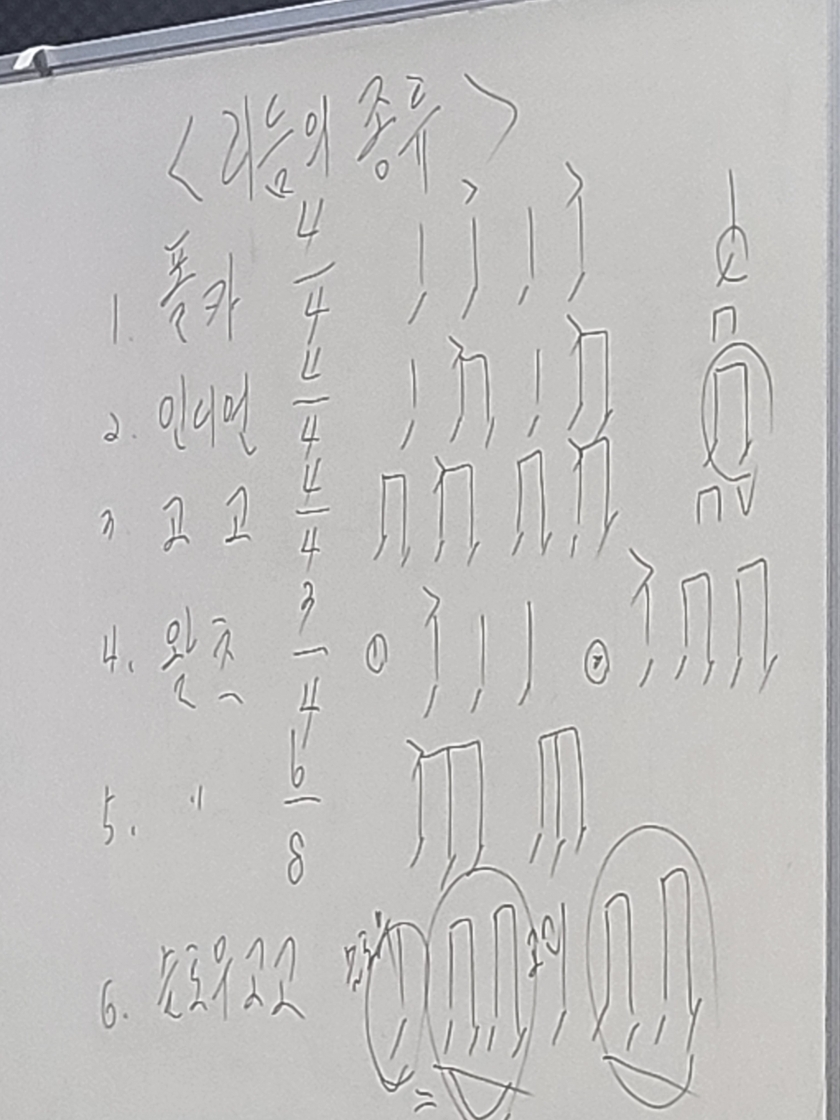 <리듬의 종류>
1. 폴카 4/4
2. 인디언 4/4
3 고고 4/4
4. 왈츠 3/4 ① ②
5. 〃 6/8
6. 슬로우고고